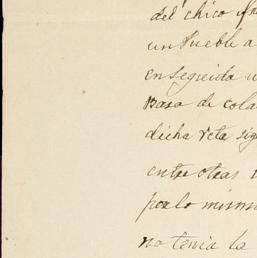 del chico
un Pueble a
en seguida
Basa de cola
dicha veta sig
entre otras
por lo mism
no tenia la